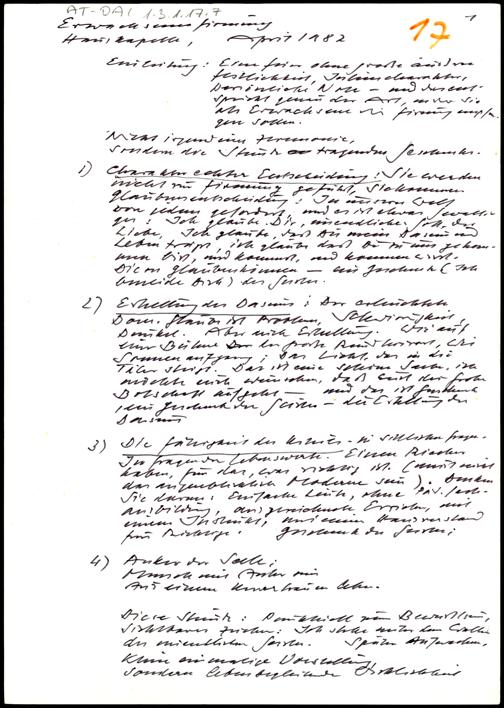 AT-DAI 1.3.1.17.7
17
1
Erwachsenenfirmung
Hauskapelle, April 1982
Einleitung: Eine Feier ohne große äußere
Festlichkeit,
persönliche Note — und das ent-
spricht genau der Art, wie Sie
als Erwachsene die Firmung empfan-
gen sollen.
Nicht irgendeine Zeremonie,
sondern die Stunde tragenden Geschenks.
1) Charakter echter Entscheidung: Sie werden
nicht zur Firmung geführt, Sie kommen
Glaubensentscheidung: In unserer Welt
von jedem gefordert, und es ist etwas Gewalti-
ges: Ich glaube Dir, unendlicher Gott, der
Liebe. Ich glaube, daß Du mein Dasein und
Leben trägst, ich glaube daß Du zu uns gekom-
men bist, und kommst, und kommen wirst.
Dieses Glaubenkönnen — ein Geschenk (Ich
Dich) des Geistes.
2) Erhellung des Daseins: Der erleuchtete
Glaube ist Problem, Schwierigkeit,
Dunkel. Aber auch Erhellung. Wie auf
einer Bühne der große, wie
Sonnenaufgang: Das Licht, das in die
Täler steigt. Das ist eine schöne Sache, ich
möchte euch wünschen, daß euch die frohe
Botschaft aufgeht — und das ist Geschenk,
ein Geschenk des Geistes — die Erhellung des
Daseins
3) Die Fähigkeit des in sittlichen Fragen
In Fragen der Lebenswerte. Einen Riecher
haben, für das, was richtig ist. (muß nicht
das augenblicklich Moderne sein). Denken
Sie daran: Einfache Leute, ohne
ausbildung, ausgezeichnete Erzieher, mit
einem Instinkt, mit einem Hausverstand
für Richtige. Geschenk des Geistes;
4) Anker der Seele;
Mensch muß Anker
Aus einem Urvertrauen leben.
Diese Stunde: Dankbarkeit zum Bewußtsein,
Sichtbares Zeichen: Ich stehe unter dem
des unendlichen Geistes. Später Aufwachen,
Keine einmalige Vorstellung
sondern lebensbegleitende Wirklichkeit